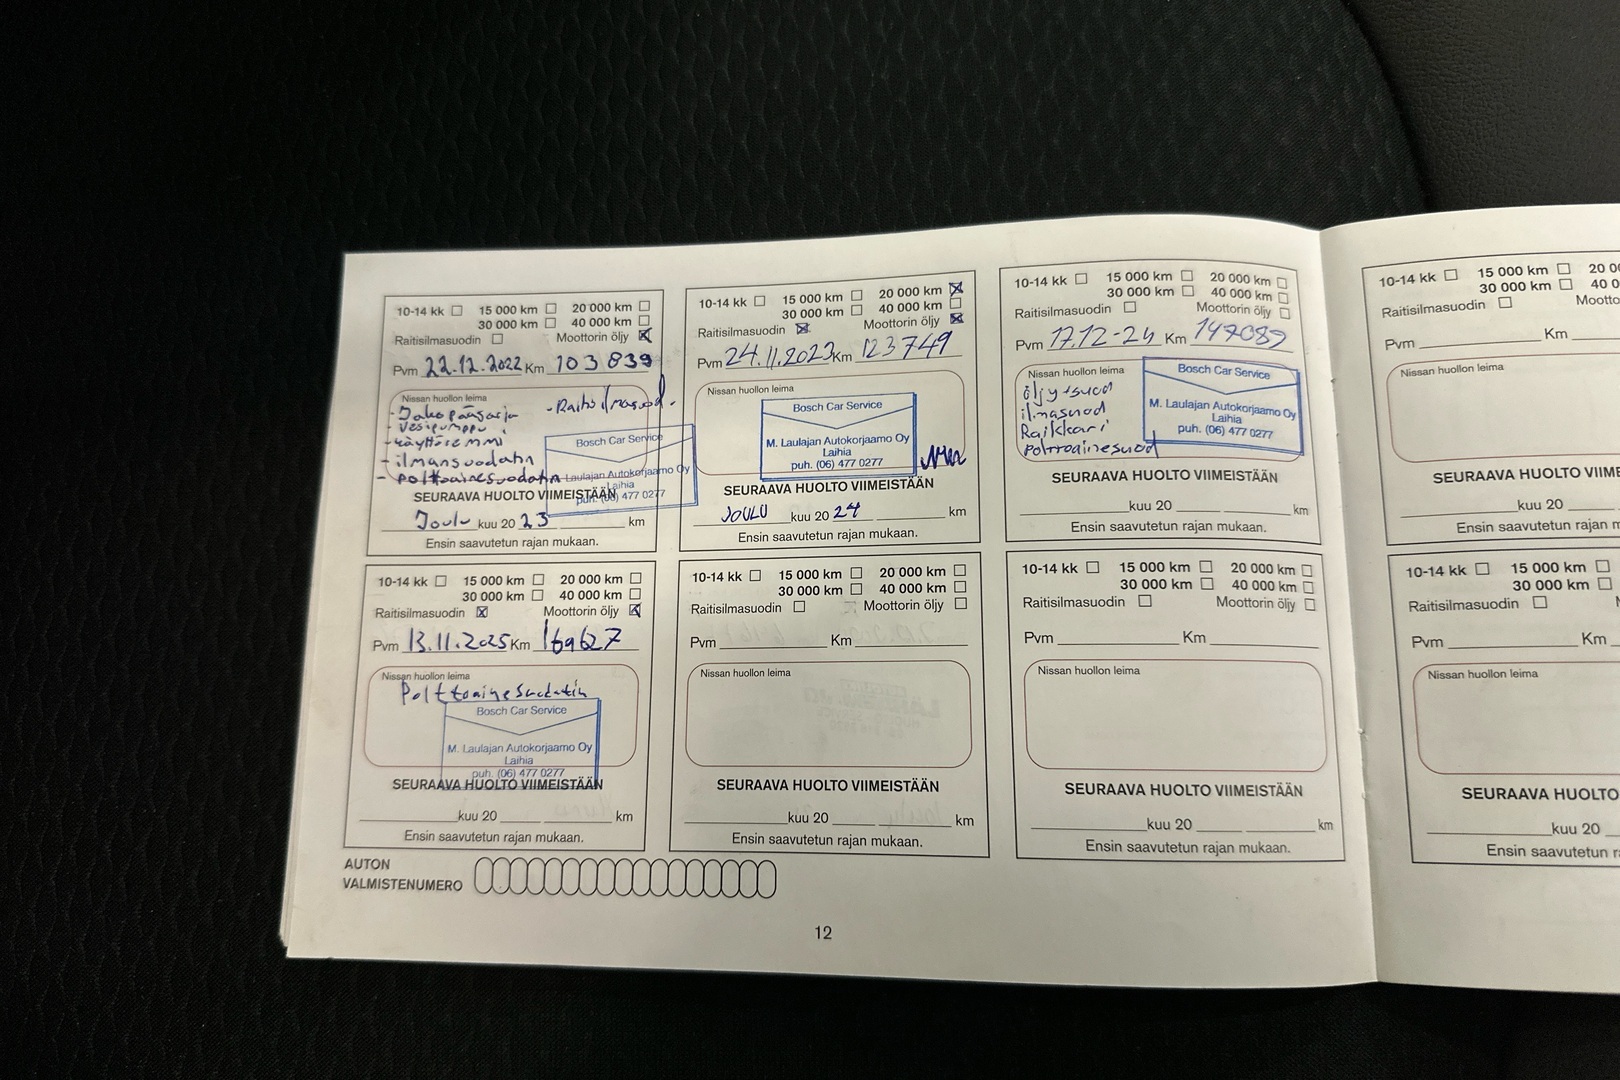 10-14 kk 15 000 km 20 000 km
30 000 km 40 000 km
Raitisilmasuodin Moottorin öljy
Pvm 22.12.2022 Km 103 839
Nissan huollon leima
- Jakopääsarja - Raitisilmasuod.
- Vesipumppu
- Käyttöremmi
- ilmansuodatin
- polttoainesuodatin
Bosch Car Service
M. Laulajan Autokorjaamo Oy
Laihia
puh. (06) 477 0277
SEURAAVA HUOLTO VIIMEISTÄÄN
Joulu kuu 20 23 km
Ensin saavutetun rajan mukaan.
10-14 kk 15 000 km 20 000 km
30 000 km 40 000 km
Raitisilmasuodin Moottorin öljy
Pvm 24.11.2023 Km 123749
Nissan huollon leima
Bosch Car Service
M. Laulajan Autokorjaamo Oy
Laihia
puh. (06) 477 0277
SEURAAVA HUOLTO VIIMEISTÄÄN
JOULU kuu 20 24 km
Ensin saavutetun rajan mukaan.
10-14 kk 15 000 km 20 000 km
30 000 km 40 000 km
Raitisilmasuodin Moottorin öljy
Pvm 17.12-24 Km 147089
Nissan huollon leima
öljy+suod
ilmasuod
Raikkari
polttoainesuod
Bosch Car Service
M. Laulajan Autokorjaamo Oy
Laihia
puh. (06) 477 0277
SEURAAVA HUOLTO VIIMEISTÄÄN
kuu 20 km
Ensin saavutetun rajan mukaan.
10-14 kk 15 000 km 20 0
30 000 km 40 0
Raitisilmasuodin Mooto
Pvm Km
Nissan huollon leima
SEURAAVA HUOLTO VI
kuu 20
Ensin saavutetun rajan m
10-14 kk 15 000 km 20 000 km
30 000 km 40 000 km
Raitisilmasuodin Moottorin öljy
Pvm 13.11.2025 Km 169627
Nissan huollon leima
Polttoainesuodatin
Bosch Car Service
M. Laulajan Autokorjaamo Oy
Laihia
puh. (06) 477 0277
SEURAAVA HUOLTO VIIMEISTÄÄN
kuu 20 km
Ensin saavutetun rajan mukaan.
10-14 kk 15 000 km 20 000 km
30 000 km 40 000 km
Raitisilmasuodin Moottorin öljy
Pvm Km
Nissan huollon leima
SEURAAVA HUOLTO VIIMEISTÄÄN
kuu 20 km
Ensin saavutetun rajan mukaan.
10-14 kk 15 000 km 20 000 km
30 000 km 40 000 km
Raitisilmasuodin Moottorin öljy
Pvm Km
Nissan huollon leima
SEURAAVA HUOLTO VIIMEISTÄÄN
kuu 20 km
Ensin saavutetun rajan mukaan.
10-14 kk 15 000 km
30 000 km
Raitisilmasuodin
Pvm Km
Nissan huollon leima
SEURAAVA HUOLTO
kuu 20
Ensin saavutetun ra
AUTON
VALMISTENUMERO
12